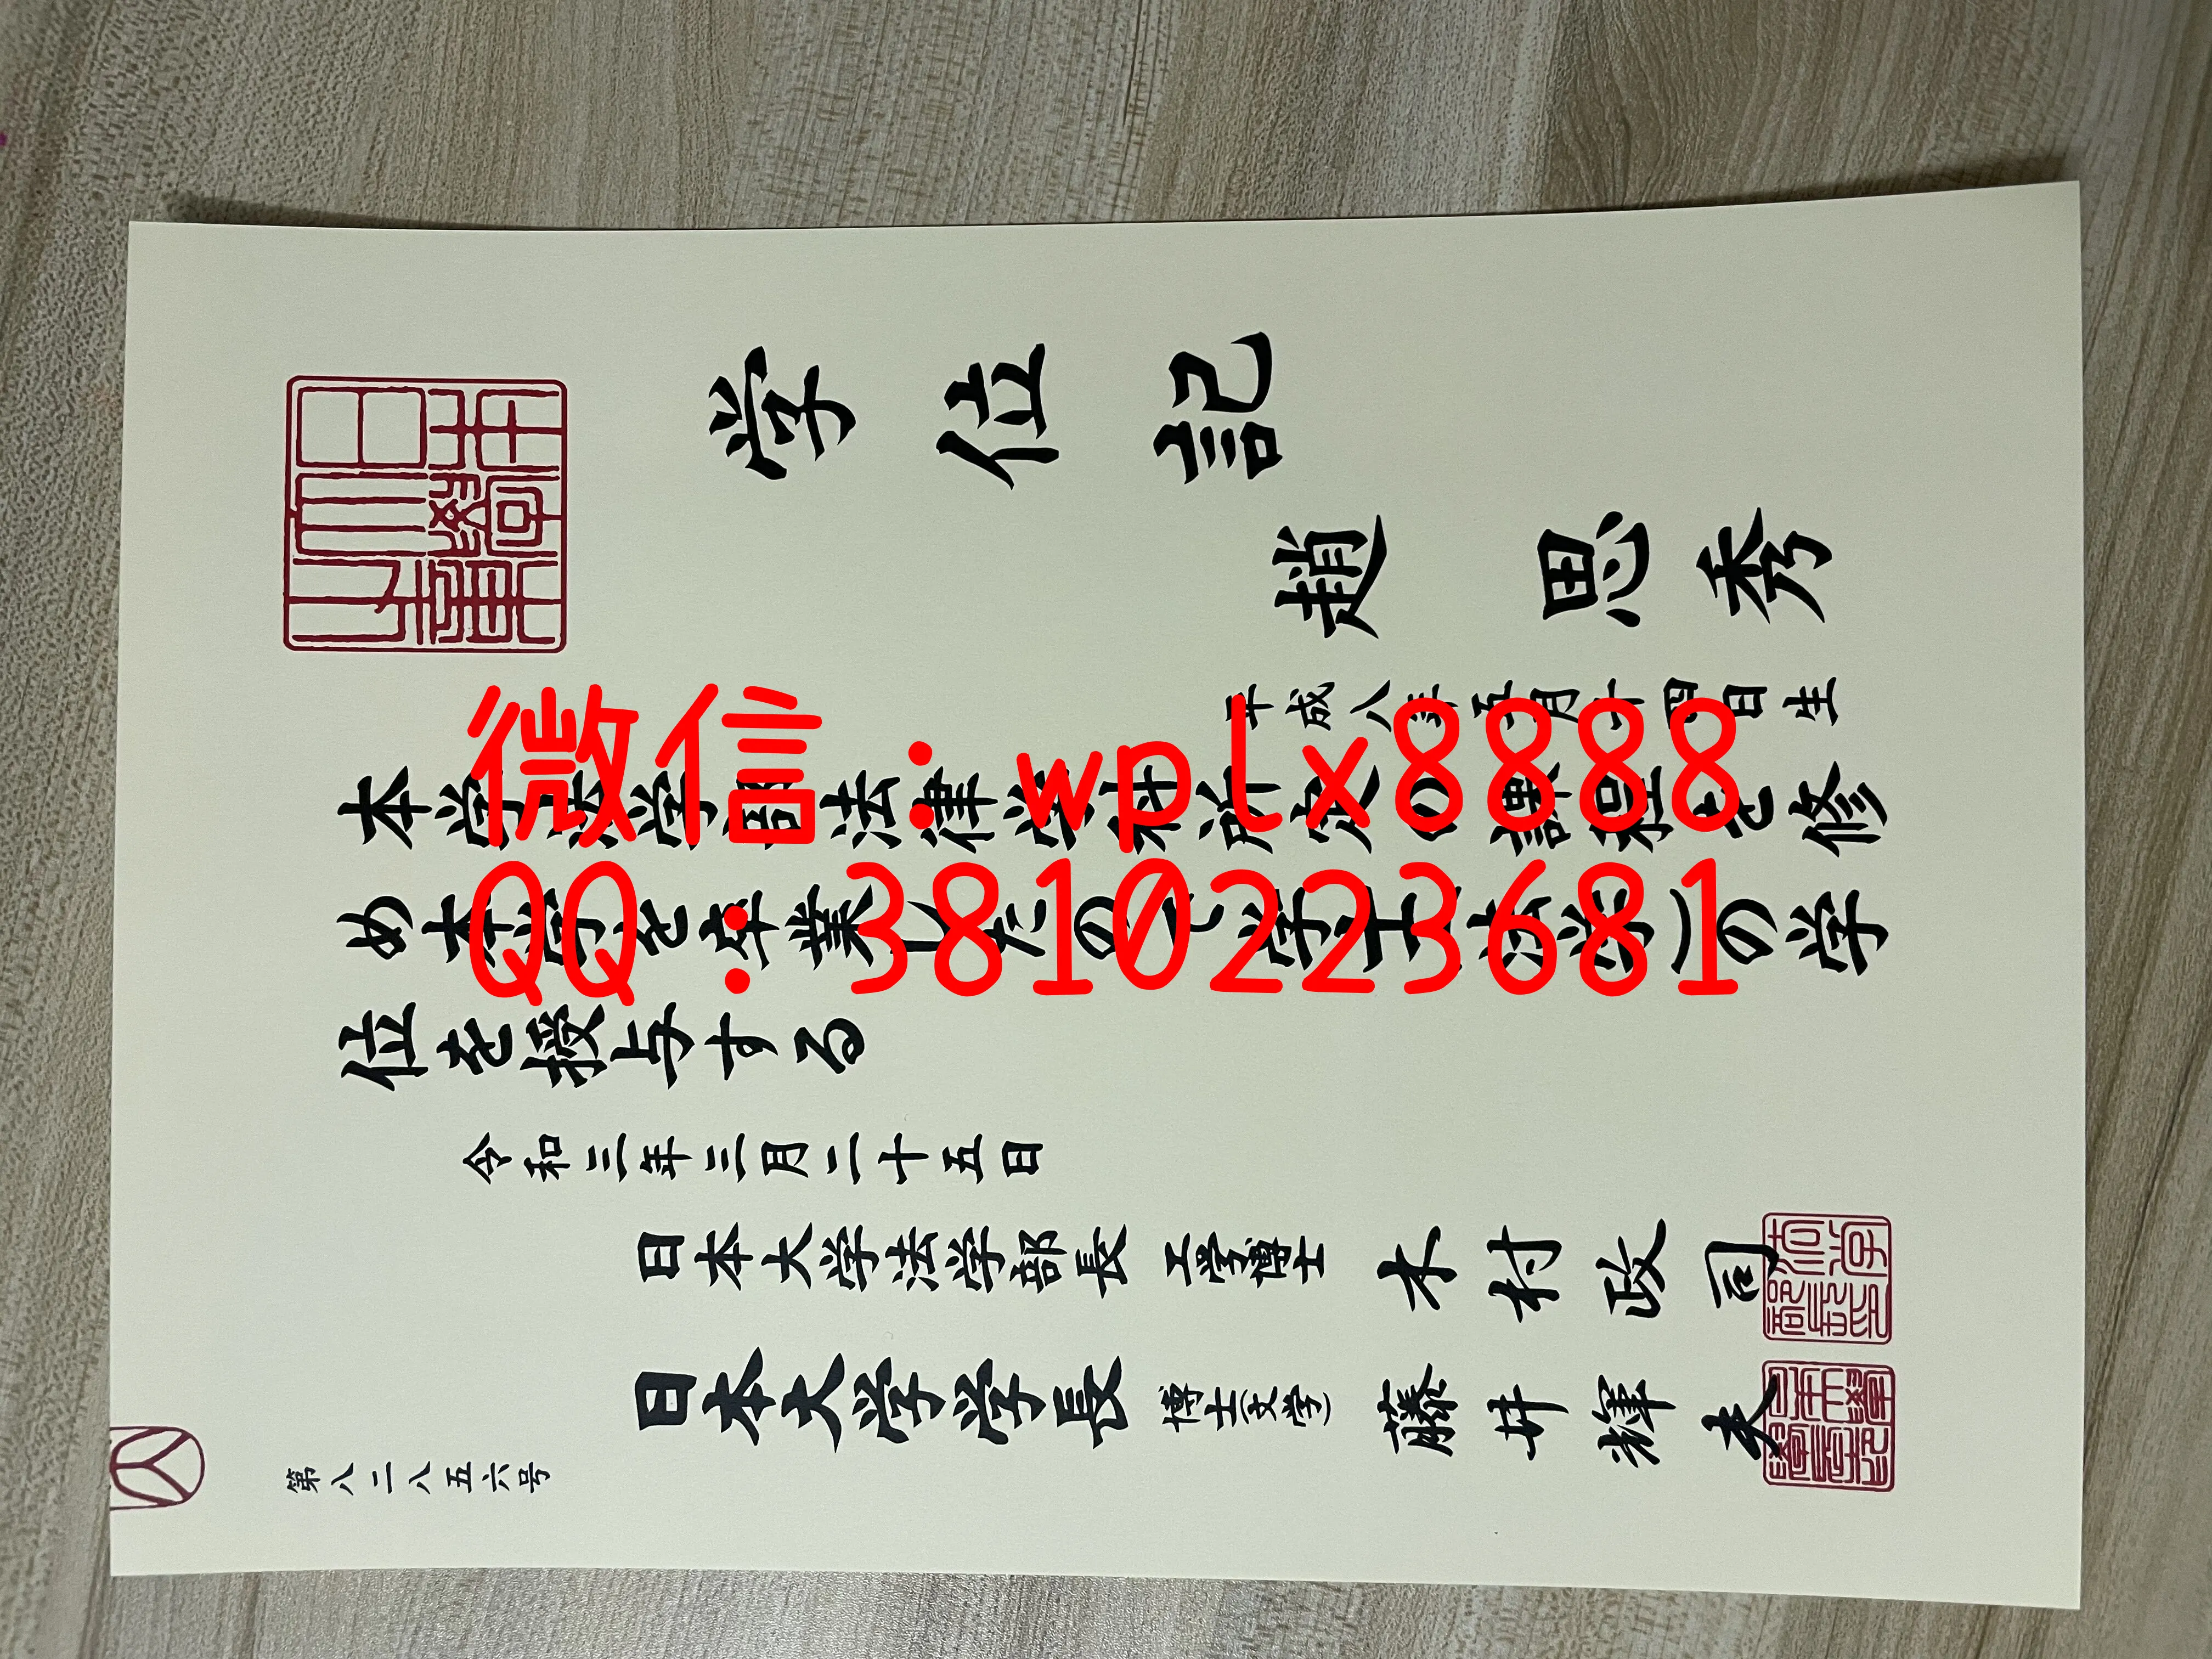 学位記
趙 思秀
平成八年五月十四日生
本学法学部法律学科所定の課程を修
め本学を卒業したので学士(法学)の学
位を授与する
令和三年三月二十五日
日本大学法学部長 工学博士 木村政司
日本大学学長 博士(文学) 藤井輝夫
第八二八五六号
微信:wplx8888
QQ:3810223681